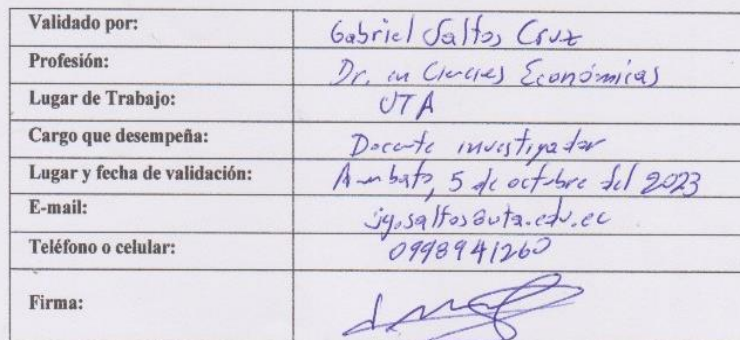 Validado por: Gabriel Saltos Cruz
Profesión: Dr. en Ciencias Económicas
Lugar de Trabajo: UTA
Cargo que desempeña: Docente investigador
Lugar y fecha de validación: Ambato, 5 de octubre del 2023
E-mail: jg.saltos@uta.edu.ec
Teléfono o celular: 0998941260
Firma: